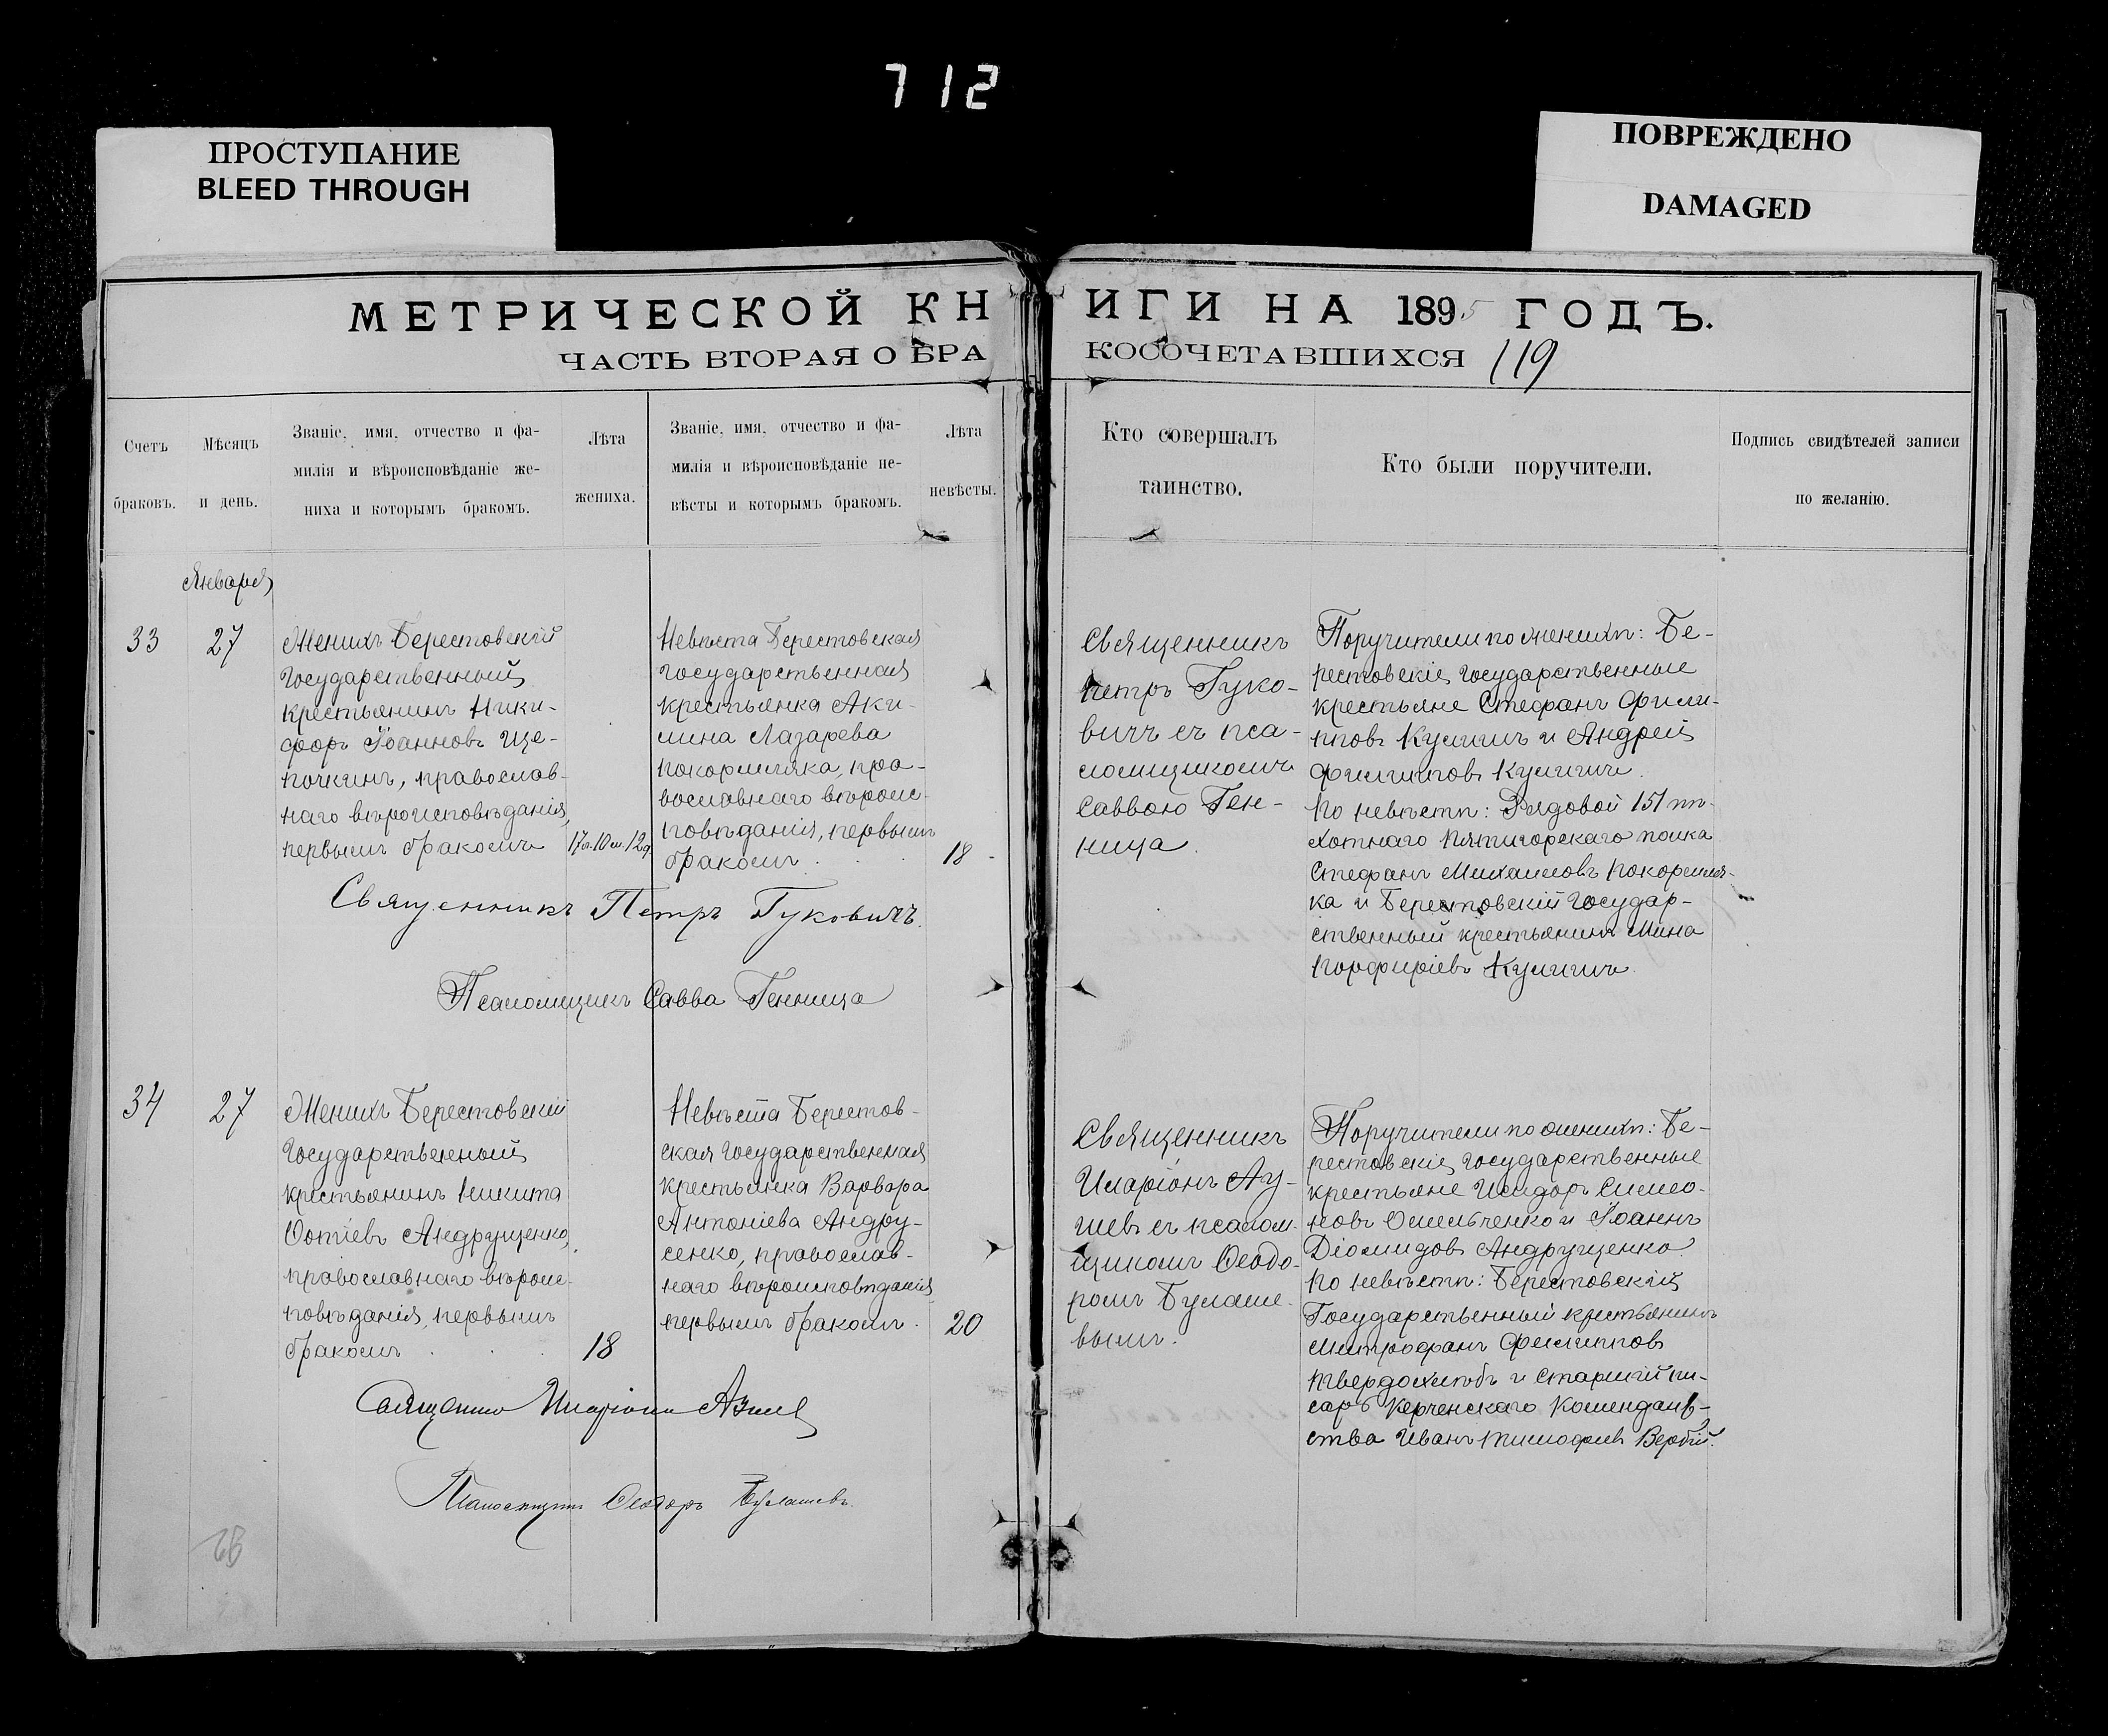 712
ПРОСТУПАНИЕ
BLEED THROUGH
ПОВРЕЖДЕНО
DAMAGED
МЕТРИЧЕСКОЙ КНИГИ НА 1895 ГОДЪ.
ЧАСТЬ ВТОРАЯ О БРАКОСОЧЕТАВШИХСЯ 119
Счетъ
браковъ.
Мѣсяцъ
и день.
Званіе, имя, отчество и фа-
милія и вѣроисповѣданіе же-
ниха и которымъ бракомъ.
Лѣта
жениха.
Званіе, имя, отчество и фа-
милія и вѣроисповѣданіе не-
вѣсты и которымъ бракомъ.
Лѣта
невѣсты.
Кто совершалъ
таинство.
Кто были поручители.
Подпись свидѣтелей записи
по желанію.
Января
33
27
Женихъ Берестовскій
Государственный
крестьянинъ Ники-
форъ Іоанновъ Ще-
почкинъ, православ-
наго вѣроисповѣданія,
первымъ бракомъ
17л.10м.12д.
Невѣста Берестовская
государственная
крестьянка Аки-
лина Лазарева
Покормляка, пра-
вославнаго вѣроис-
повѣданія, первымъ
бракомъ
18
Священникъ
Петръ Гуко-
вичъ съ пса-
ломщикомъ
Саввою Ген-
ница.
Поручители по женихѣ: Бе-
рестовскіе государственные
крестьяне Стефанъ Фили-
пповъ Кулигинъ и Андрей
Филипповъ Кулигинъ.
По невѣстѣ: Рядовой 151 пѣ-
хотнаго Пятигорскаго полка
Стефанъ Михаиловъ Покормля-
ка и Берестовскій Государ-
ственный крестьянинъ Мина
Порфиріевъ Кулигинъ.
Священникъ Петръ Гуковичъ.
Псаломщикъ Савва Генница
34
27
Женихъ Берестовскій
Государственный
крестьянинъ Никита
Фотіевъ Андрущенко,
православнаго вѣроис-
повѣданія, первымъ
бракомъ
18
Невѣста Берестов-
ская государственная
крестьянка Варвара
Антоніева Андру-
сенко, православ-
наго вѣроисповѣданія
первымъ бракомъ.
20
Священникъ
Иларіонъ
съ псалом-
щикомъ Ѳеодо-
ромъ Булаше-
вымъ.
Поручители по женихѣ: Бе-
рестовскіе государственные
крестьяне Исидоръ Симео-
новъ Омельченко и Іоаннъ
Діомидовъ Андрущенко.
По невѣстѣ: Берестовскій
Государственный крестьянинъ
Митрофанъ Филипповъ
Твердохлѣбъ и старшій пи-
сарь Керченскаго Комендант-
ства Иванъ Тимофѣевъ Вербій.
Священникъ Иларіонъ
Псаломщикъ Ѳеодоръ Булашевъ.